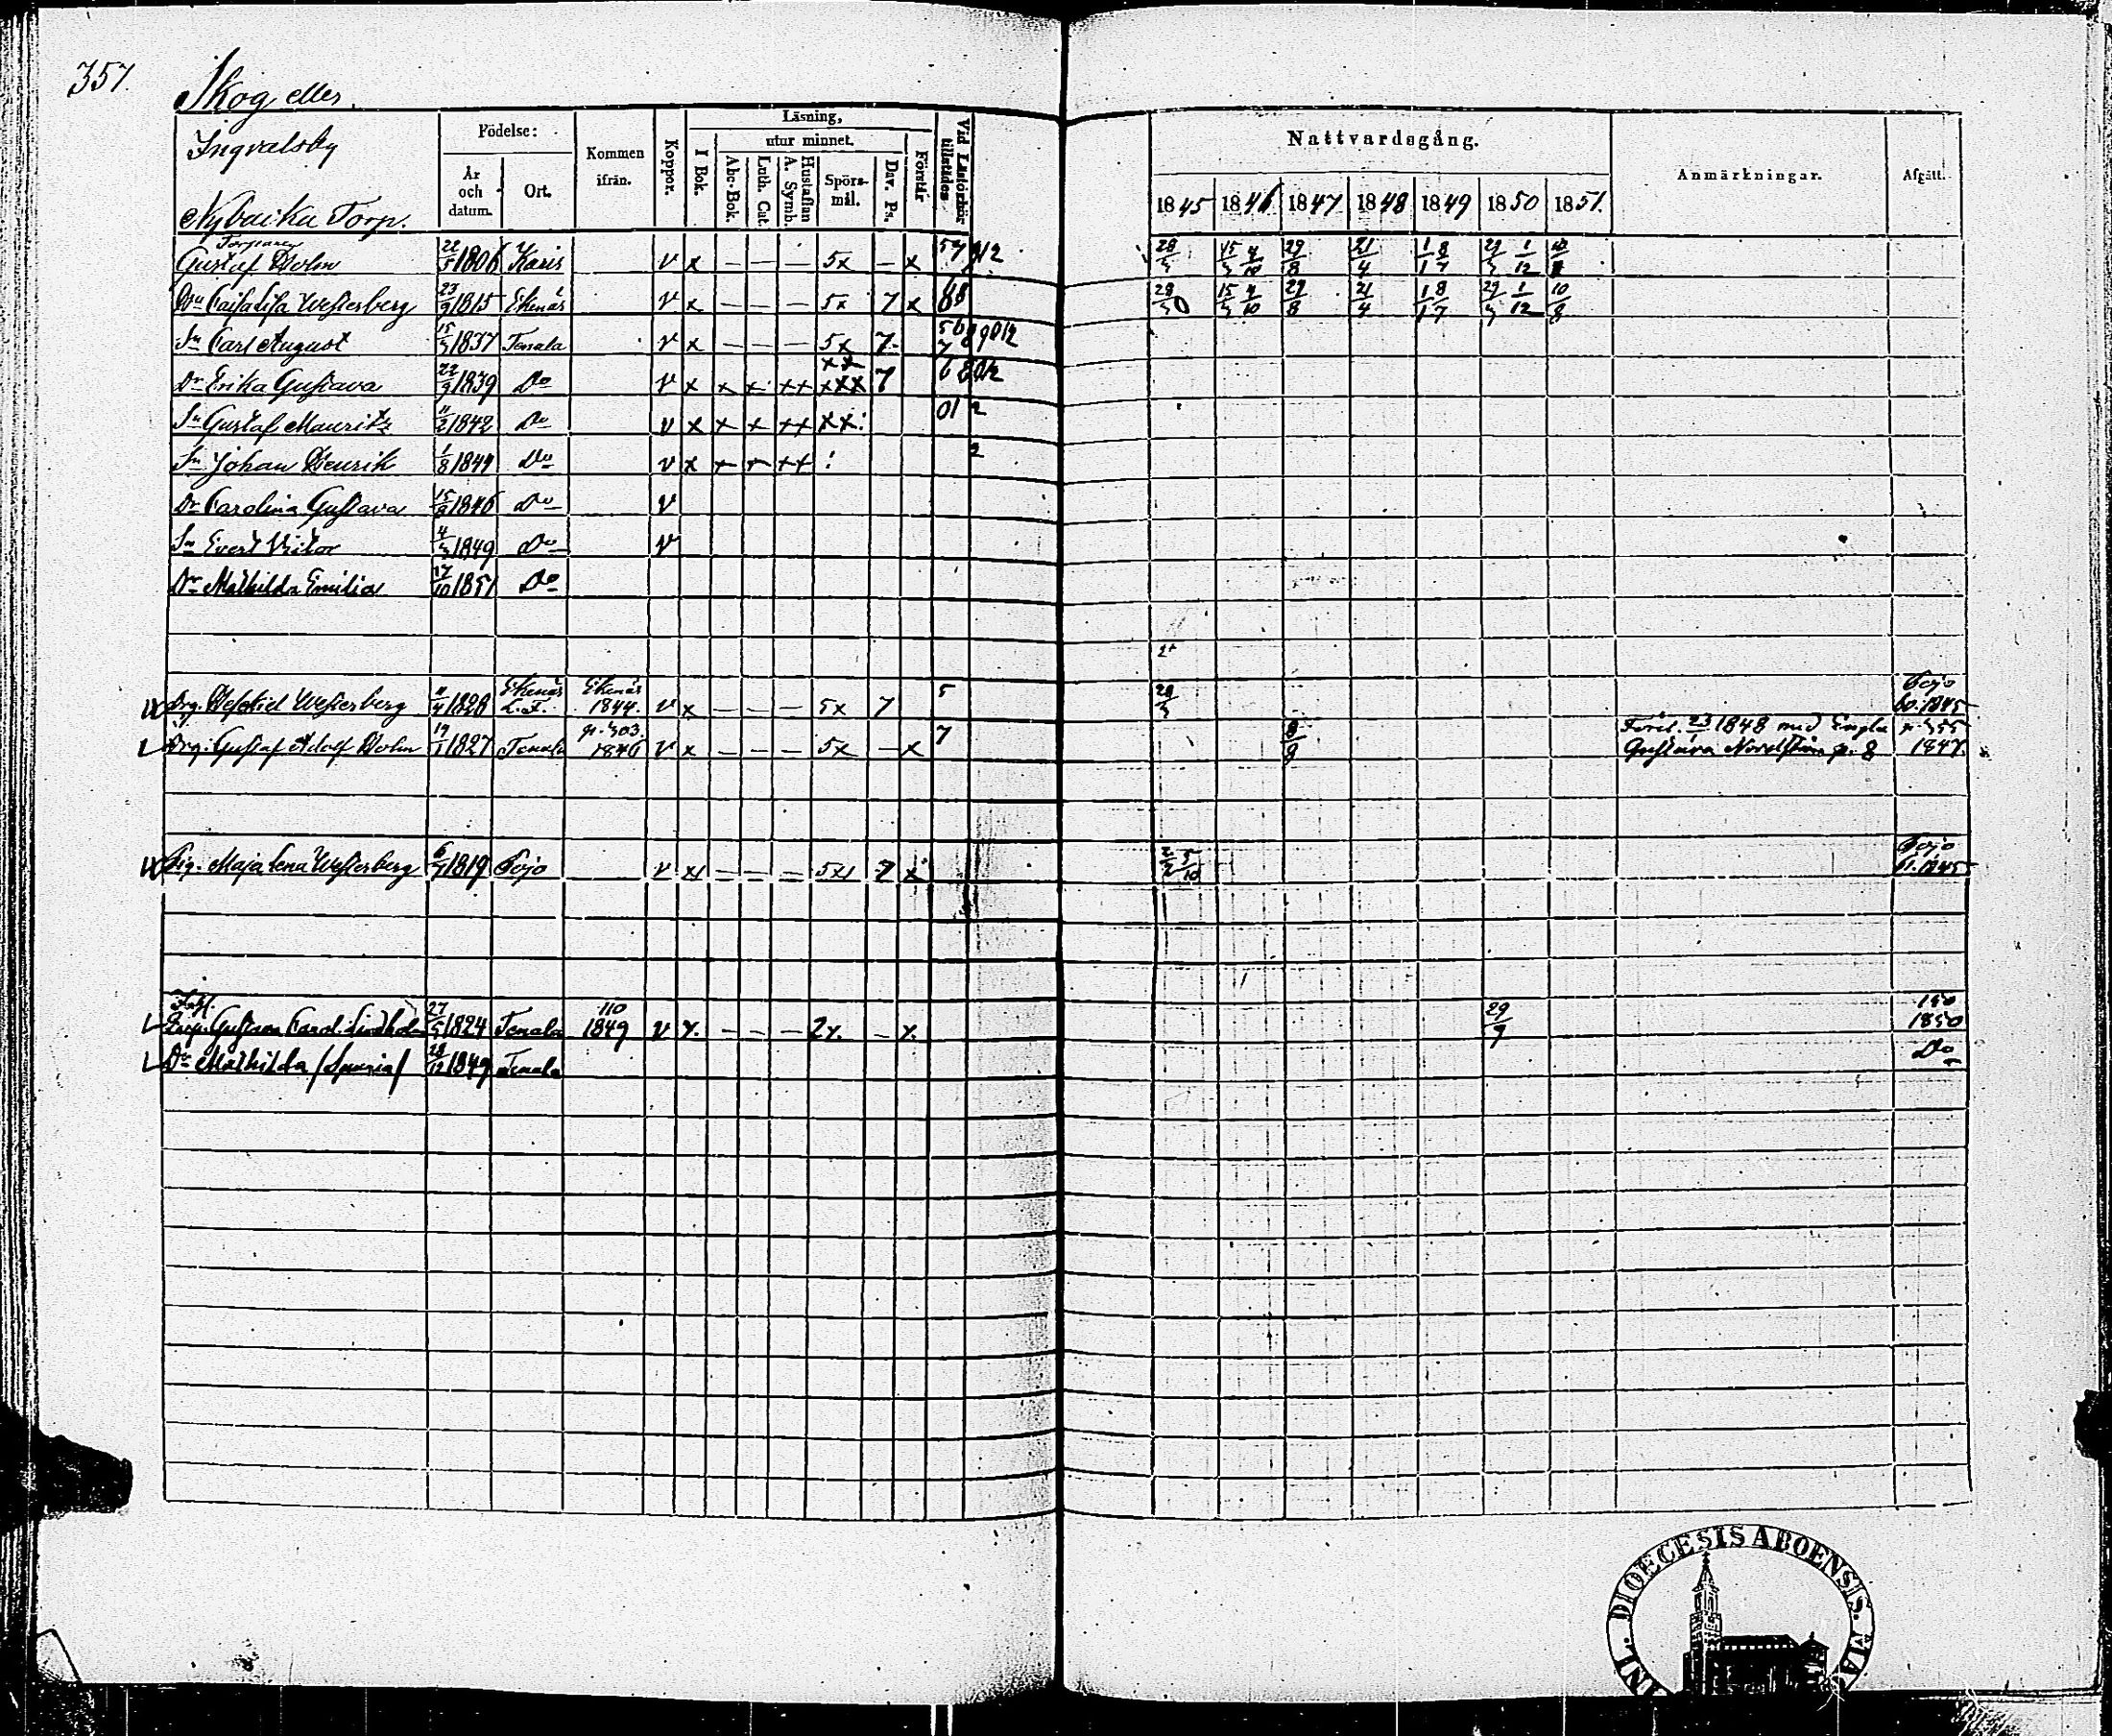 357.
Skog eller
Ingvalsby
Nybacka Torp.
Födelse:
År och datum.
Ort.
Kommen ifrån.
Koppor.
Läsning,
I Bok.
utur minnet.
Abc-Bok.
Luth. Cat.
Hustaflan A. Symb.
Spörs-mål.
Dav. Ps.
Förstår
Vid Läsförhör tillstädes
Nattvardsgång.
1845 1846 1847 1848 1849 1850 1851.
Anmärkningar.
Afgått.
Torparen
Gustaf Holm 22/5 1806 Karis v x — — — 5x — x 28/3 29/8 21/4 1/1 8/7 1/12
Hu Caisa Lisa Westerberg 23/9 1815 Ekenäs v x — — — 5x 7 x 29/8 21/4 1/1 8/7 1/12 10/8
Sn Carl August 15/3 1837 Tenala v x — — — 5x 7
Dr Erika Gustava 22/9 1839 Do v x x x xx xxx 7
Sn Gustaf Mauritz 11/2 1842 Do v x x x xx xx
Sn Johan Henrik 1/8 1844 Do v x x x xx
Dr Carolina Gustava 15/8 1846 Do v
Sn Evert Victor 4/3 1849 Do v
Dr Mathilda Emilia 17/10 1851 Do
Drg. Hesekiel Westerberg 1828 Ekenäs L.F. Ekenäs 1844. v x — — — 5x 7 5 28/3 Pojo 1845
Drg. Gustaf Adolf Holm 19/1 1827 Tenala p. 303. 1846 v x — — — 5x — x 7 8/8 Förel. 23/1 1848 med Engla Gustava p. 8 p. 355 1847.
Pig. Maja Lena Westerberg 6/7 1819 Pojo v x — — — 5x 7 x 5/10 Pojo 1845
Inh.
Gustava Carol. Lindholm 27/5 1824 Tenala 110 1849 v x. — — — 2x. — x. 29/9 1850
Dr Mathilda /Spuria/ 28/12 1849 Tenala Do
DIOECESIS ABOENSIS.